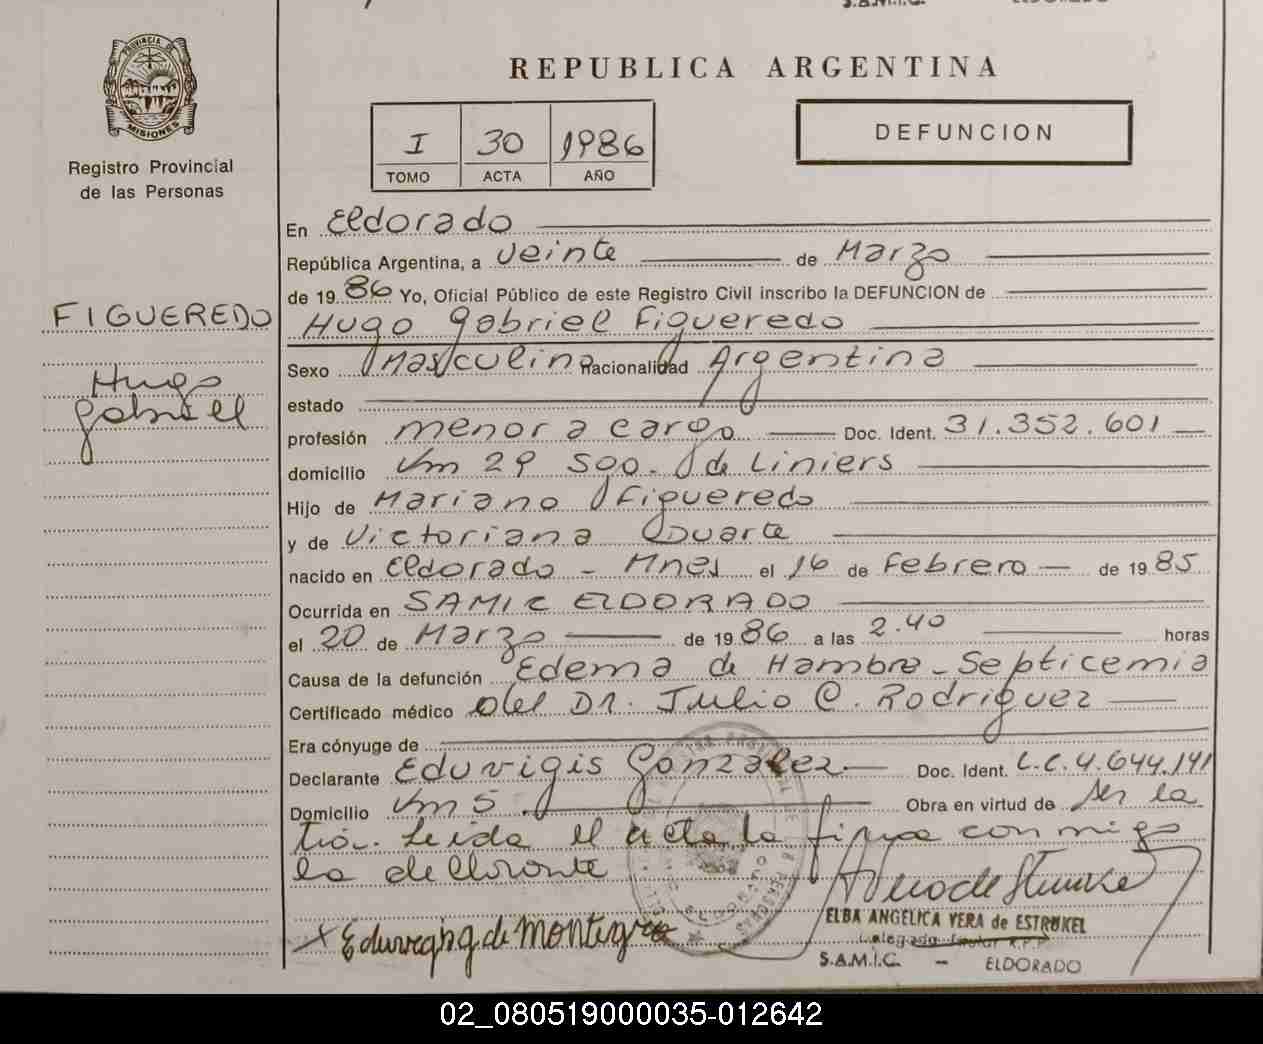 S.A.M.I.C. ELDORADO
PROVINCIA DE
MISIONES
Registro Provincial
de las Personas
REPUBLICA ARGENTINA
I 30 1986
TOMO ACTA AÑO
DEFUNCION
En Eldorado
República Argentina, a veinte de Marzo
de 19 86 Yo, Oficial Público de este Registro Civil inscribo la DEFUNCION de
FIGUEREDO
Hugo Gabriel Figueredo
Hugo
Gabriel
Sexo Masculino nacionalidad Argentina
estado
profesión menor a cargo Doc. Ident. 31.352.601
domicilio Km 29 Soo. de Liniers
Hijo de Mariano Figueredo
y de Victoriana Duarte
nacido en Eldorado - Mnes el 16 de Febrero de 19 85
Ocurrida en SAMIC ELDORADO
el 20 de Marzo de 19 86 a las 2.40 horas
Causa de la defunción Edema de Hambre - Septicemia
Certificado médico del Dr. Julio C. Rodriguez
Era cónyuge de
Declarante Eduvigis Gonzalez Doc. Ident. L.C. 4.644.141
Domicilio Km 5 Obra en virtud de ser la
tia. Leida el acta la firma conmigo
la declarante
ELBA ANGELICA VERA de ESTRUKEL
S.A.M.I.C. - ELDORADO
02_080519000035-012642